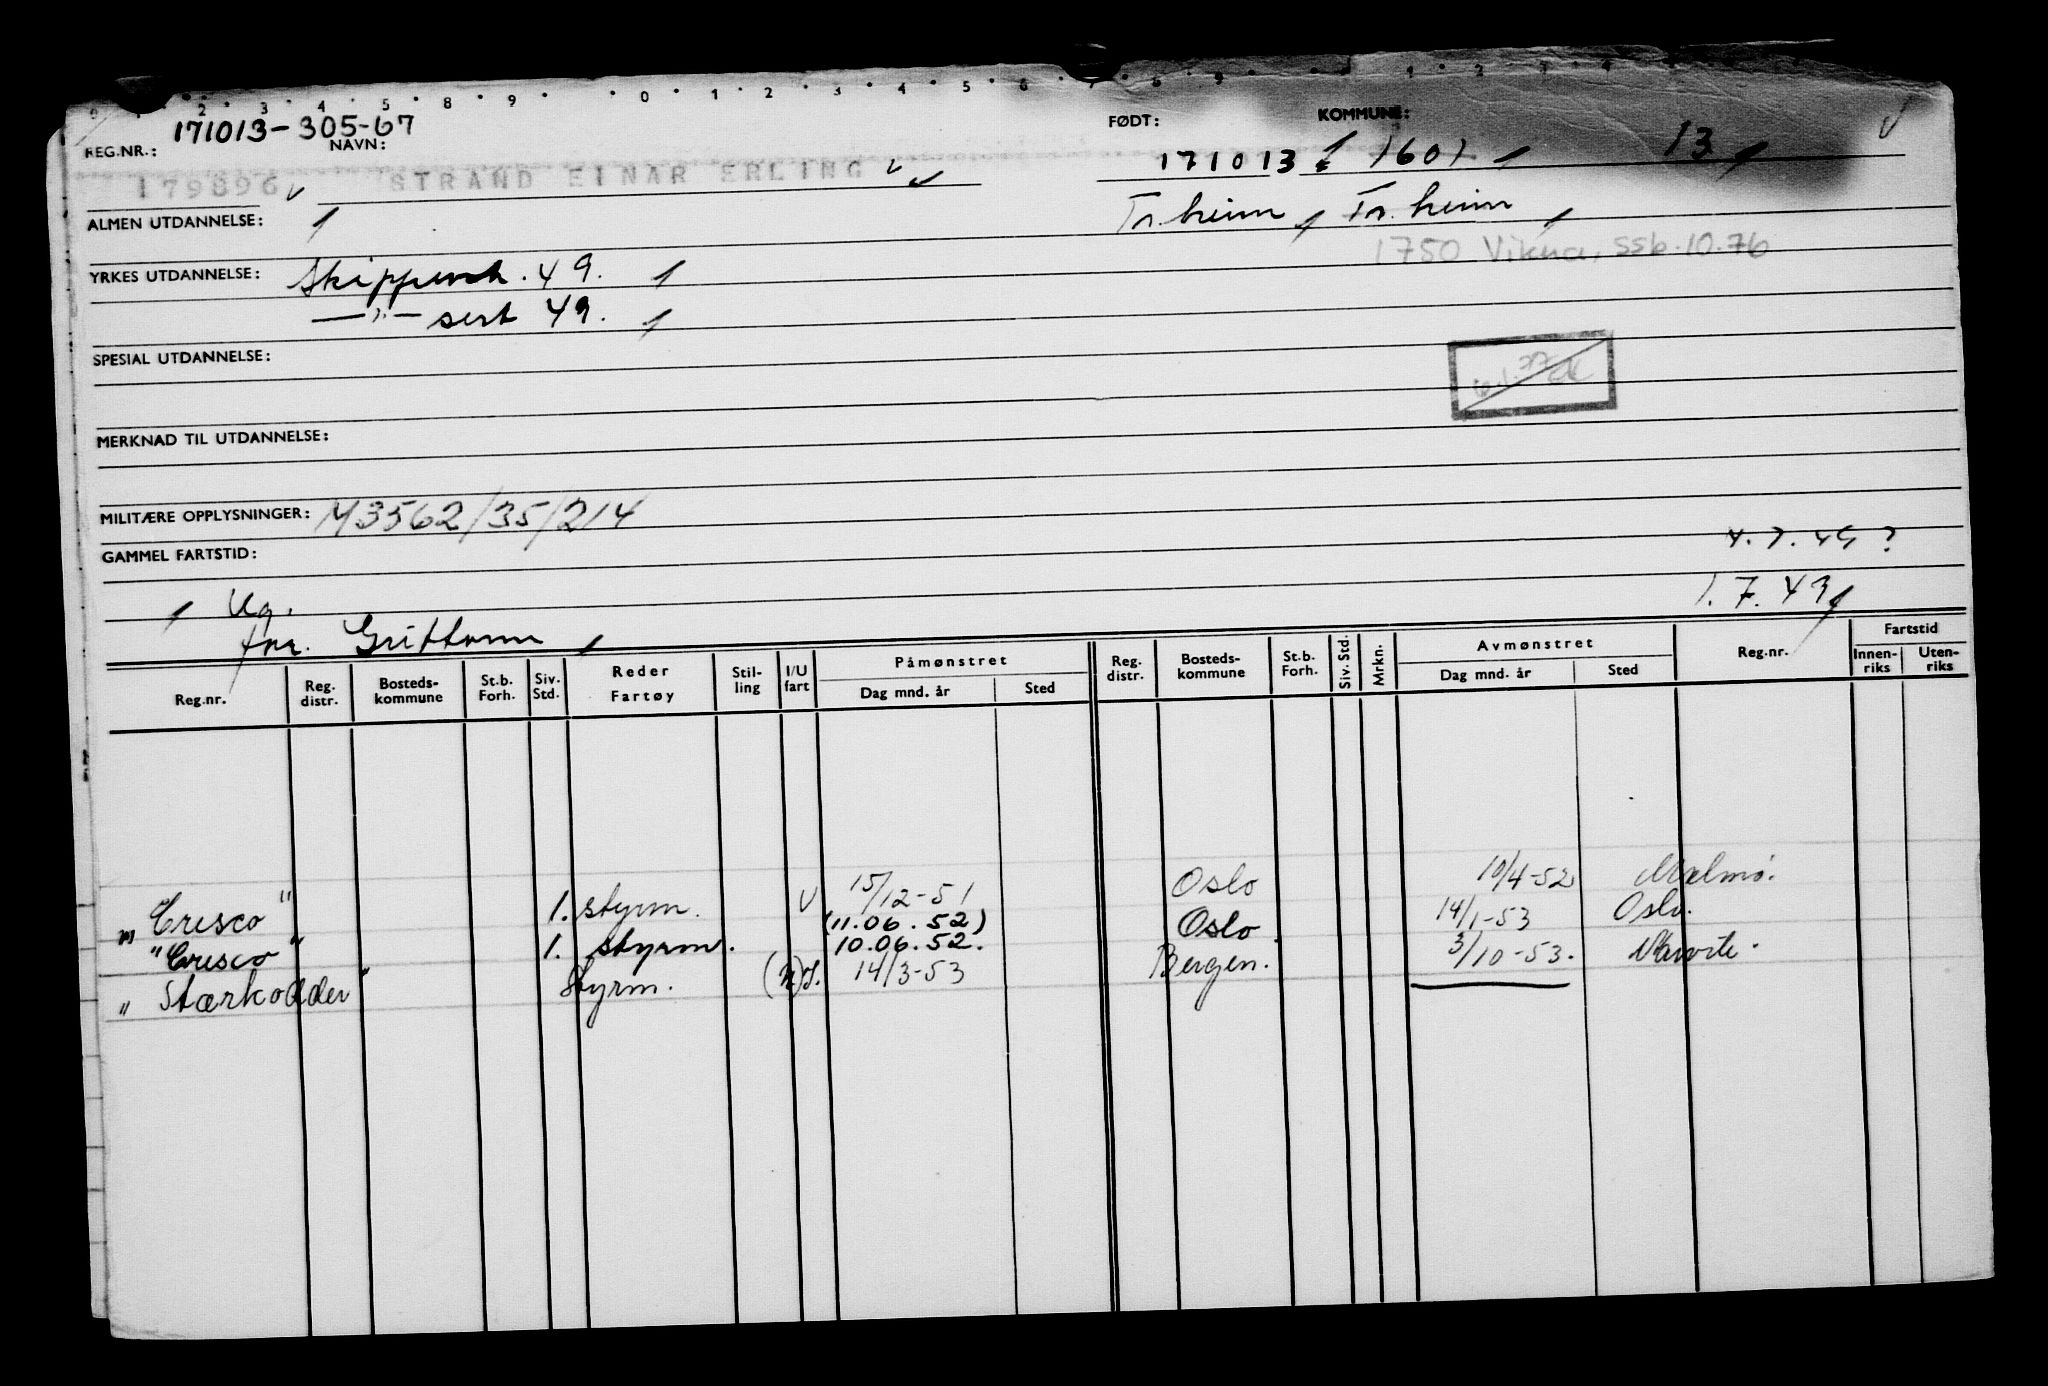 2 3 4 5 8 9 0 1 2 3 4 5 6 7 8 9 1 2 3
REG.NR.: 171013-305-67 NAVN: FØDT: KOMMUNE:
179896 STRAND EINAR ERLING 171013 1601 13
ALMEN UTDANNELSE: Tr.heim Tr.heim
1750 Vikna, ssb.10.76
YRKES UTDANNELSE: 49.
—"— sert 49.
SPESIAL UTDANNELSE:
MERKNAD TIL UTDANNELSE:
MILITÆRE OPPLYSNINGER: M3562/35/214
GAMMEL FARTSTID: 4.7.49?
Ug. 1.7.43
Reg.nr. Reg. distr. Bosteds- kommune St.b. Forh. Siv. Std. Reder Fartøy Stil- ling I/U fart Påmønstret Dag mnd. år Sted Reg. distr. Bosteds- kommune St.b. Forh. Siv. Std. Mrkn. Avmønstret Dag mnd. år Sted Reg.nr. Fartstid Innen- riks Uten- riks
"Cresco" 1. styrm. U 15/12-51 Oslo 10/4-52 Malmö.
(11.06.52)
"Cresco" 1. styrm. 10.06.52. Oslo 14/1-53 Oslo.
"Stærkodder" Styrm. 14/3-53 Bergen. 3/10-53.